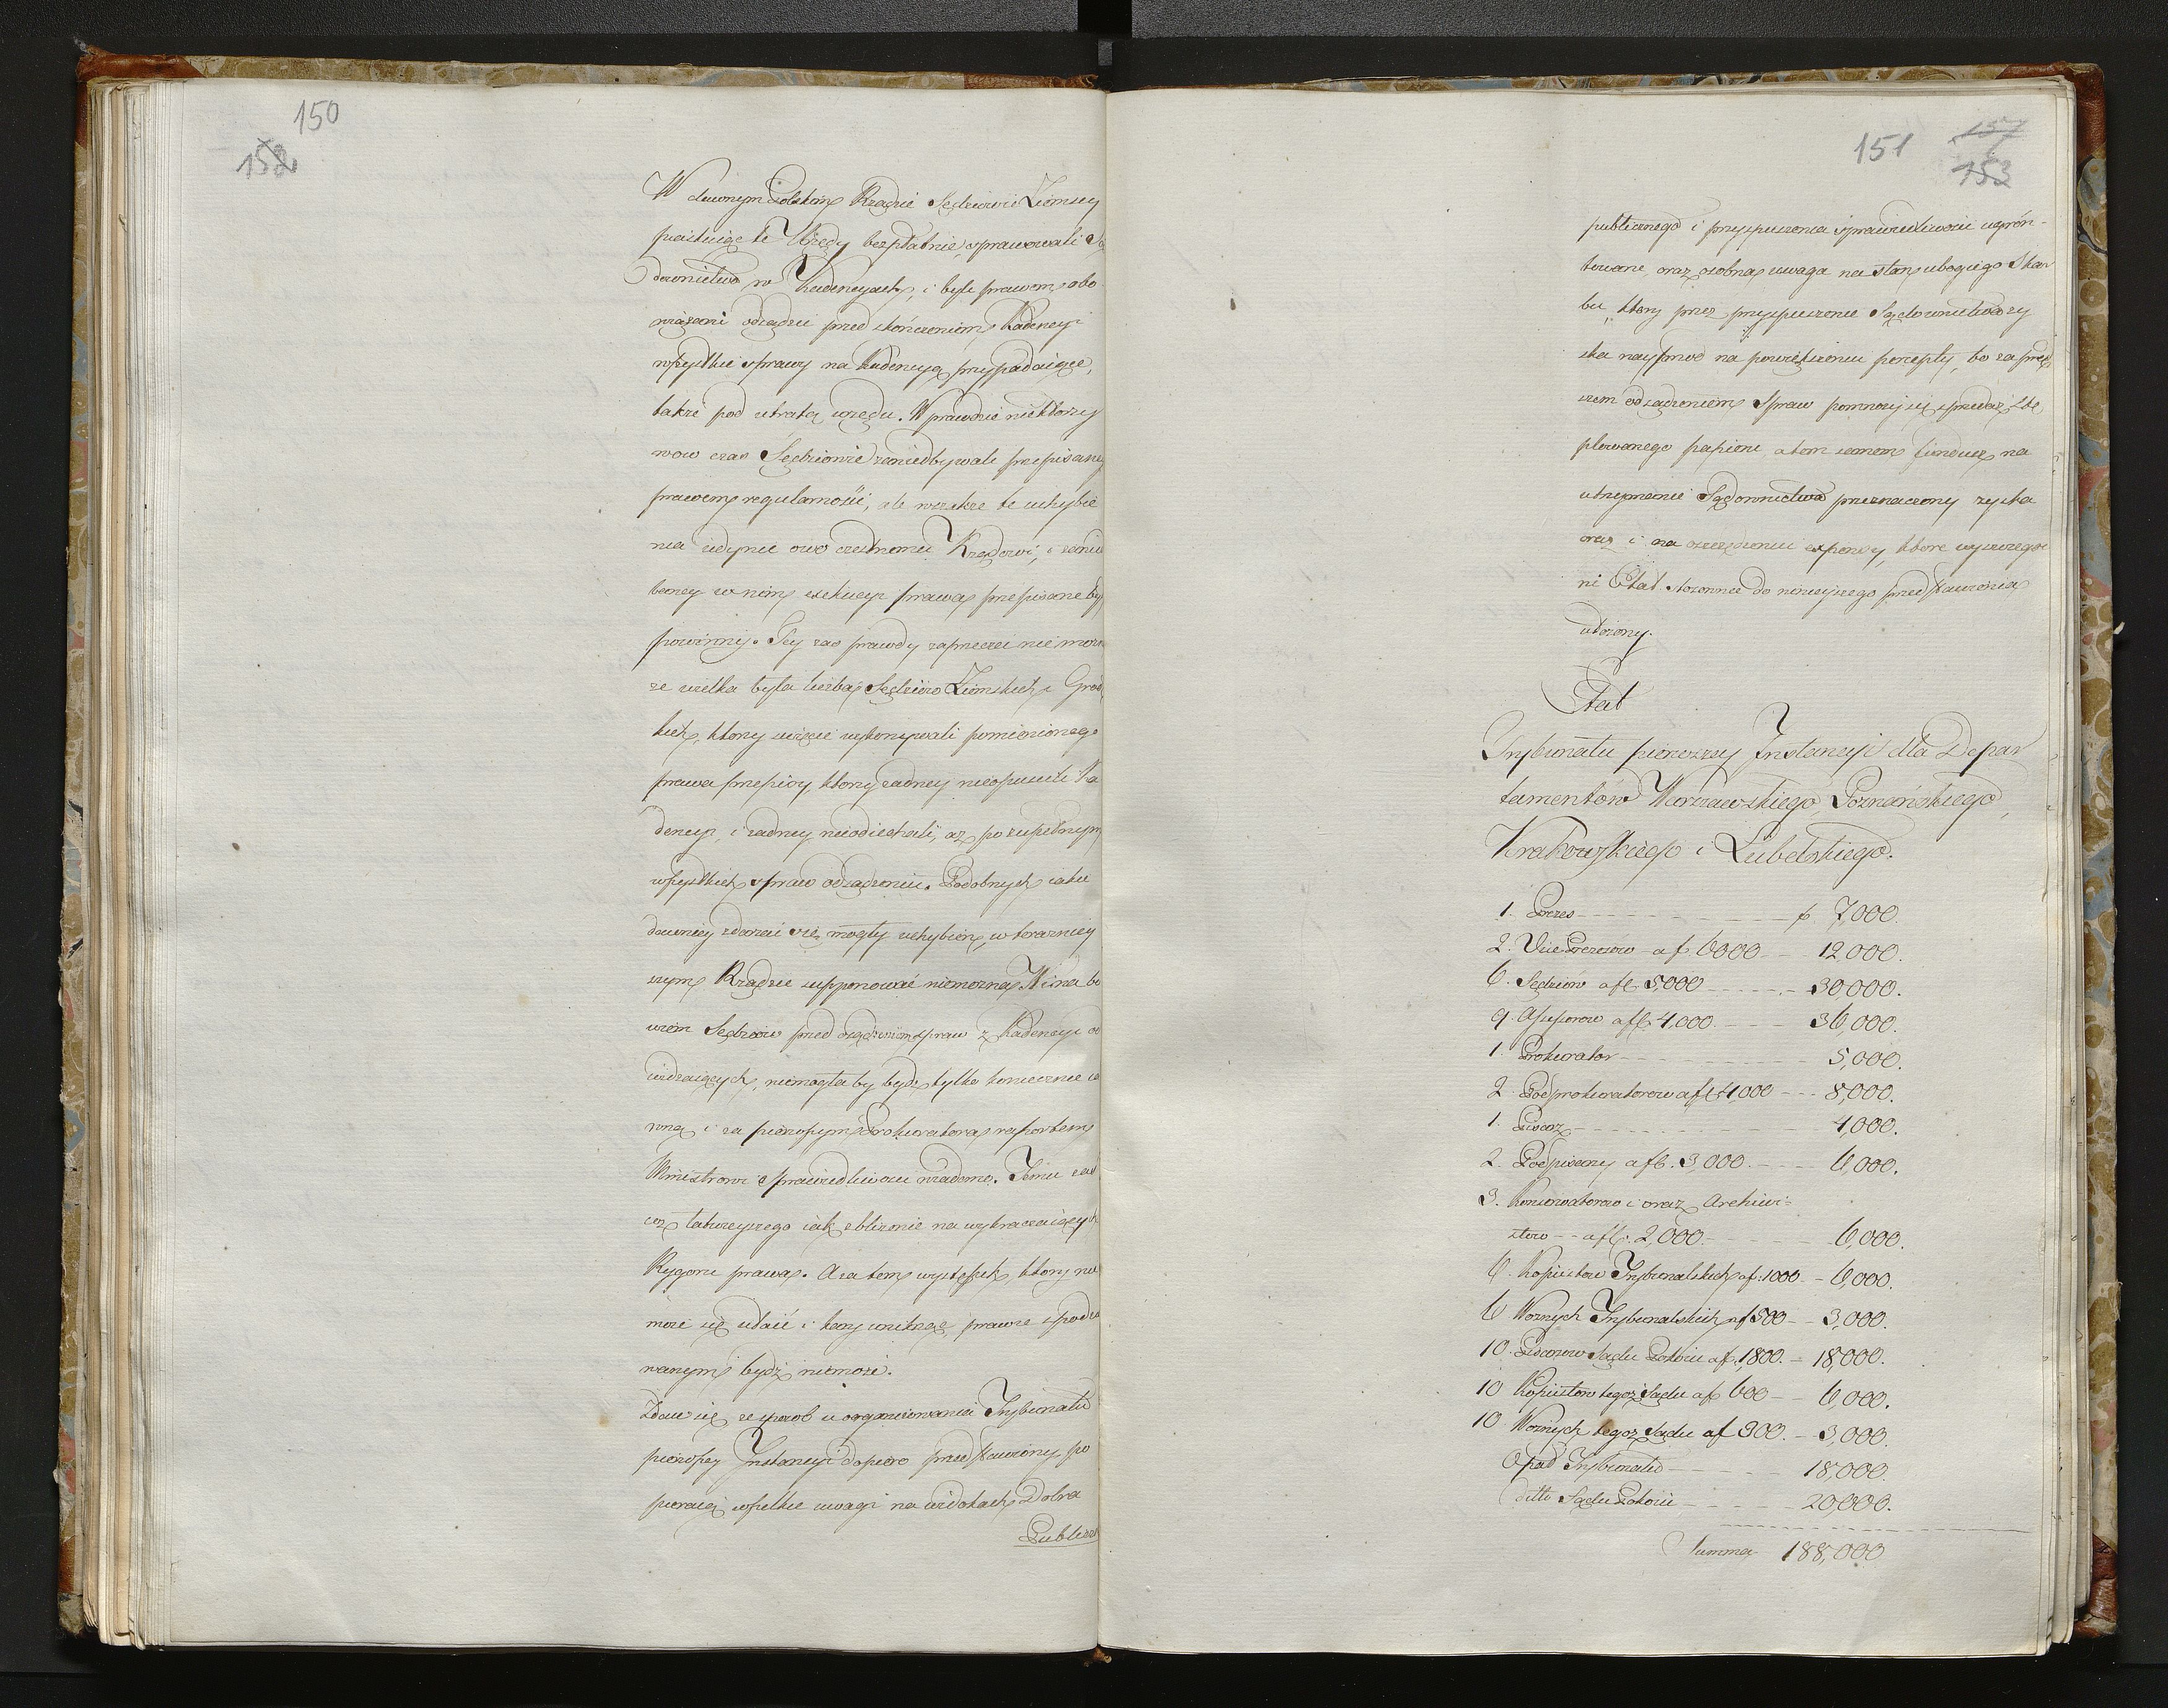 150
152
W dawnym Polskim Rządzie Sędziowie Ziemscy
piastuiąc te Urzędy bezpłatnie, sprawowali Są
downictwo w Kadencyach, i byli prawem obo
wiązani odsądzić przed skończeniem Kadencyi
wszystkie sprawy na Kadencyą przypadaiące,
także pod utratą urzędu. Wprawdzie niektorzy
wow czas Sędziowie zaniedbywali przepisaney
prawem regularności, ale wszakże te uchybie
nia iedynie owo czesnemu Rządowi, i zanie
baney w nim exekucyi prawa przypisane być
powinny. Tey zas prawdy zaprzeczeć nie można
ze wielka była liczba Sędziow Ziemskich i Grodz
kich, ktorzy wiernie wykonywali pomienionego
prawa przepisy, ktorzy żadney nieopuścili Ka
dencyi, i żadney nieodiechali, aż po zupełnym
wszystkich spraw odsądzeniu. Podobnych iakie
dawniey zdarzać się mogły uchybień, w terazniey
szym Rządzie supponować niemożna. Wina bo
wiem Sędziow przed osądzeniem spraw z Kadencyi od
ieżdzaiących, niemogła by bydź tylko koniecznie ia
wną i za pierwszym Prokuratora raportem
Ministrowi sprawiedliwości wiadomą. Temu zas
iest łatwieyszego iak zbliżenie na wykraczaiących
Rygoru prawa. A zatem występek, ktory nie
może się utaić i kary uniknąć, prawie spodzie
wanym bydź niemoże.
Zdaie się, ze sposob uorganizowania Trybunału
pierwszey Instancyi dopiero przedstawiony, po
pieraią wszelkie uwagi na widokach Dobra
Publicz
151
157
153
publicznego i przyspieszenia sprawiedliwości ugrón-
towane, oraz osobna uwaga na stan ubogiego Skar
bu, ktory przez przyspieszenie Sądownictwa zy
ska nayprzod na powiększeniu percepty, bo za pręd
szem odsądzeniem Spraw pomnoży się sprzedaż Ste,
plowanego papieru, a tem samem fundusz na
utrzymanie Sądownictwa przeznaczony zyska
oraz i na oszczędzeniu expensy, ktore wyszczegol
ni Etat stosownie do ninieyszego przedstawienia
ułożony.
Etat
Trybunału pierwszey Instancyi dla Depar
tamentow Warszawskiego, Poznańskiego,
Krakowskiego i Lubelskiego.
1. Prezes - - - - - - - f 7,000.
2. Vice Prezesow a f 6000 - - 12,000.
6. Sędziow a fl. 5,000 - - - - 30,000.
9. Assessorow a fl. 4,000. - - - 36,000.
1. Prokurator - - - - - - 5,000.
2. Podprokuratorow a fl. 4,000 - - - 8,000.
1. Pisarz - - - - - - - 4,000.
2. Podpisarzy a fl. 3,000. - - - 6,000.
3. Konserwatorow i oraz Archiwi=
stow - - a fl. 2,000. - - - - 6,000.
6. Kopistow Trybunalskich a f. 1000. - 6,000.
6 Woznych Trybunalskich a f 500 - - 3,000.
10. Pisarzow Sądu Pokoiu a f. 1,800. - 18,000.
10 Kopistow tegoż Sądu a f 600 - - 6,000.
10. Woznych tegoż Sądu a f 300. - 3,000.
Opał Trybunału - - - - - 18,000.
ditto Sądu Pokoiu - - - - 20,000.
Summa 188,000